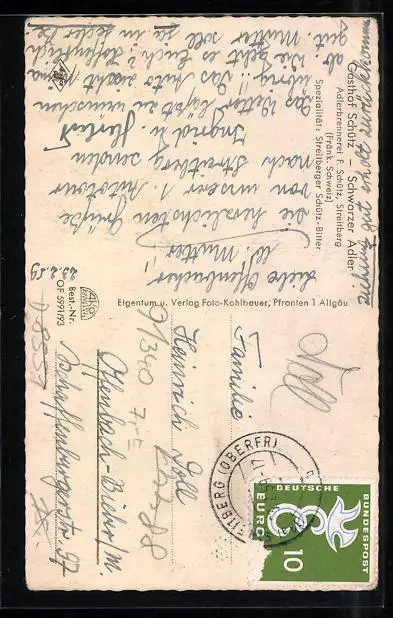 Gasthof Schütz – Schwarzer Adler
Adlerbrennerei F. Schütz, Streitberg
(Fränk. Schweiz)
Spezialität: Streitberger Schütz-Bitter
23.2.59
Liebe Offenbacher
u. Mutter
die herzlichsten Grüße
von unserer 1. Autotour
nach Streitberg senden
Ingrid u.
Das Wetter läßt zu wünschen
übrig!! Das Auto macht
Wie geht es Euch? Hoffentlich
gut. Mutter soll
gut
AKO
Best.-Nr.
OF 5991/93
Eigentum u. Verlag Foto-Kohlbauer, Pfronten 1 Allgäu
Familie
Heinrich Doll
Offenbach-Bieber/M.
Aschaffenburgerstr. 97
9/340
D-8551
Doll
STREITBERG (OBERFR)
DEUTSCHE
BUNDESPOST
EUROPA
10